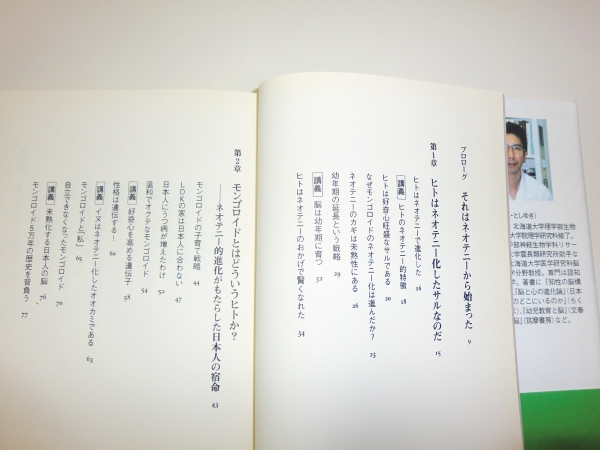 プロローグ それはネオテニーから始まった 9
第1章 ヒトはネオテニー化したサルなのだ 15
ヒトはネオテニーで進化した 16
講義 ヒトのネオテニー的特徴 18
ヒトは好奇心旺盛なサルである 20
なぜモンゴロイドのネオテニー化は進んだか? 23
ネオテニーのカギは未熟性にある 26
幼年期の延長という戦略 29
講義 脳は幼年期に育つ 32
ヒトはネオテニーのおかげで賢くなれた 34
第2章 モンゴロイドとはどういうヒトか?
――ネオテニー的進化がもたらした日本人の宿命 43
モンゴロイドの子育て戦略 44
LDKの家は日本人に合わない 47
日本人にうつ病が増えたわけ 52
温和でオクテなモンゴロイド 54
講義 好奇心を高める遺伝子 58
性格は遺伝する! 60
講義 イヌはネオテニー化したオオカミである 63
モンゴロイドと「私」 65
自立できなくなったモンゴロイド 70
講義 未熟化する日本人の脳 76
モンゴロイド5万年の歴史を背負う 77
・としゆき)
北海道大学理学部生物
大学院理学研究科修了。
学部神経生物学科リサー
大学霊長類研究所助手な
北海道大学医学研究科脳
学分野教授。専門は認知
学。著書に『知性の脳構
『脳と心の進化論』(日本
のどこにいるのか』(もく
)、『幼児教育と脳』(文春
脳』(筑摩書房)など。